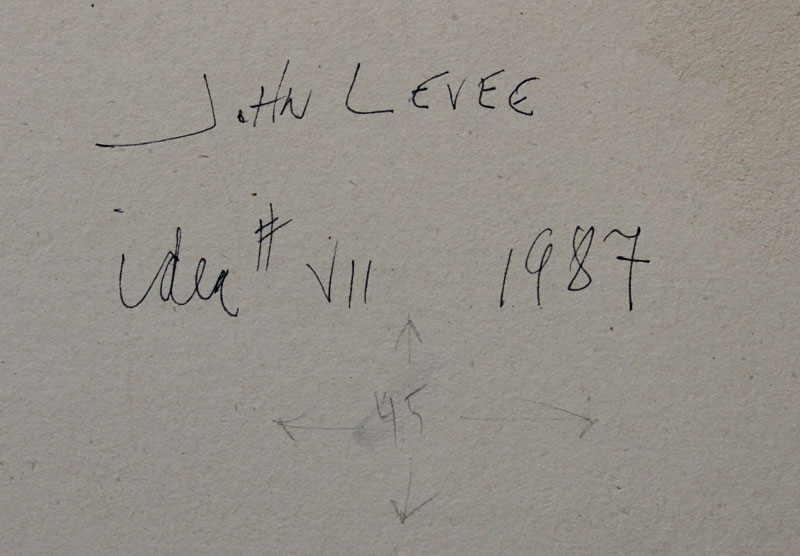 JOHN LEVEE
idea # VII 1987
45